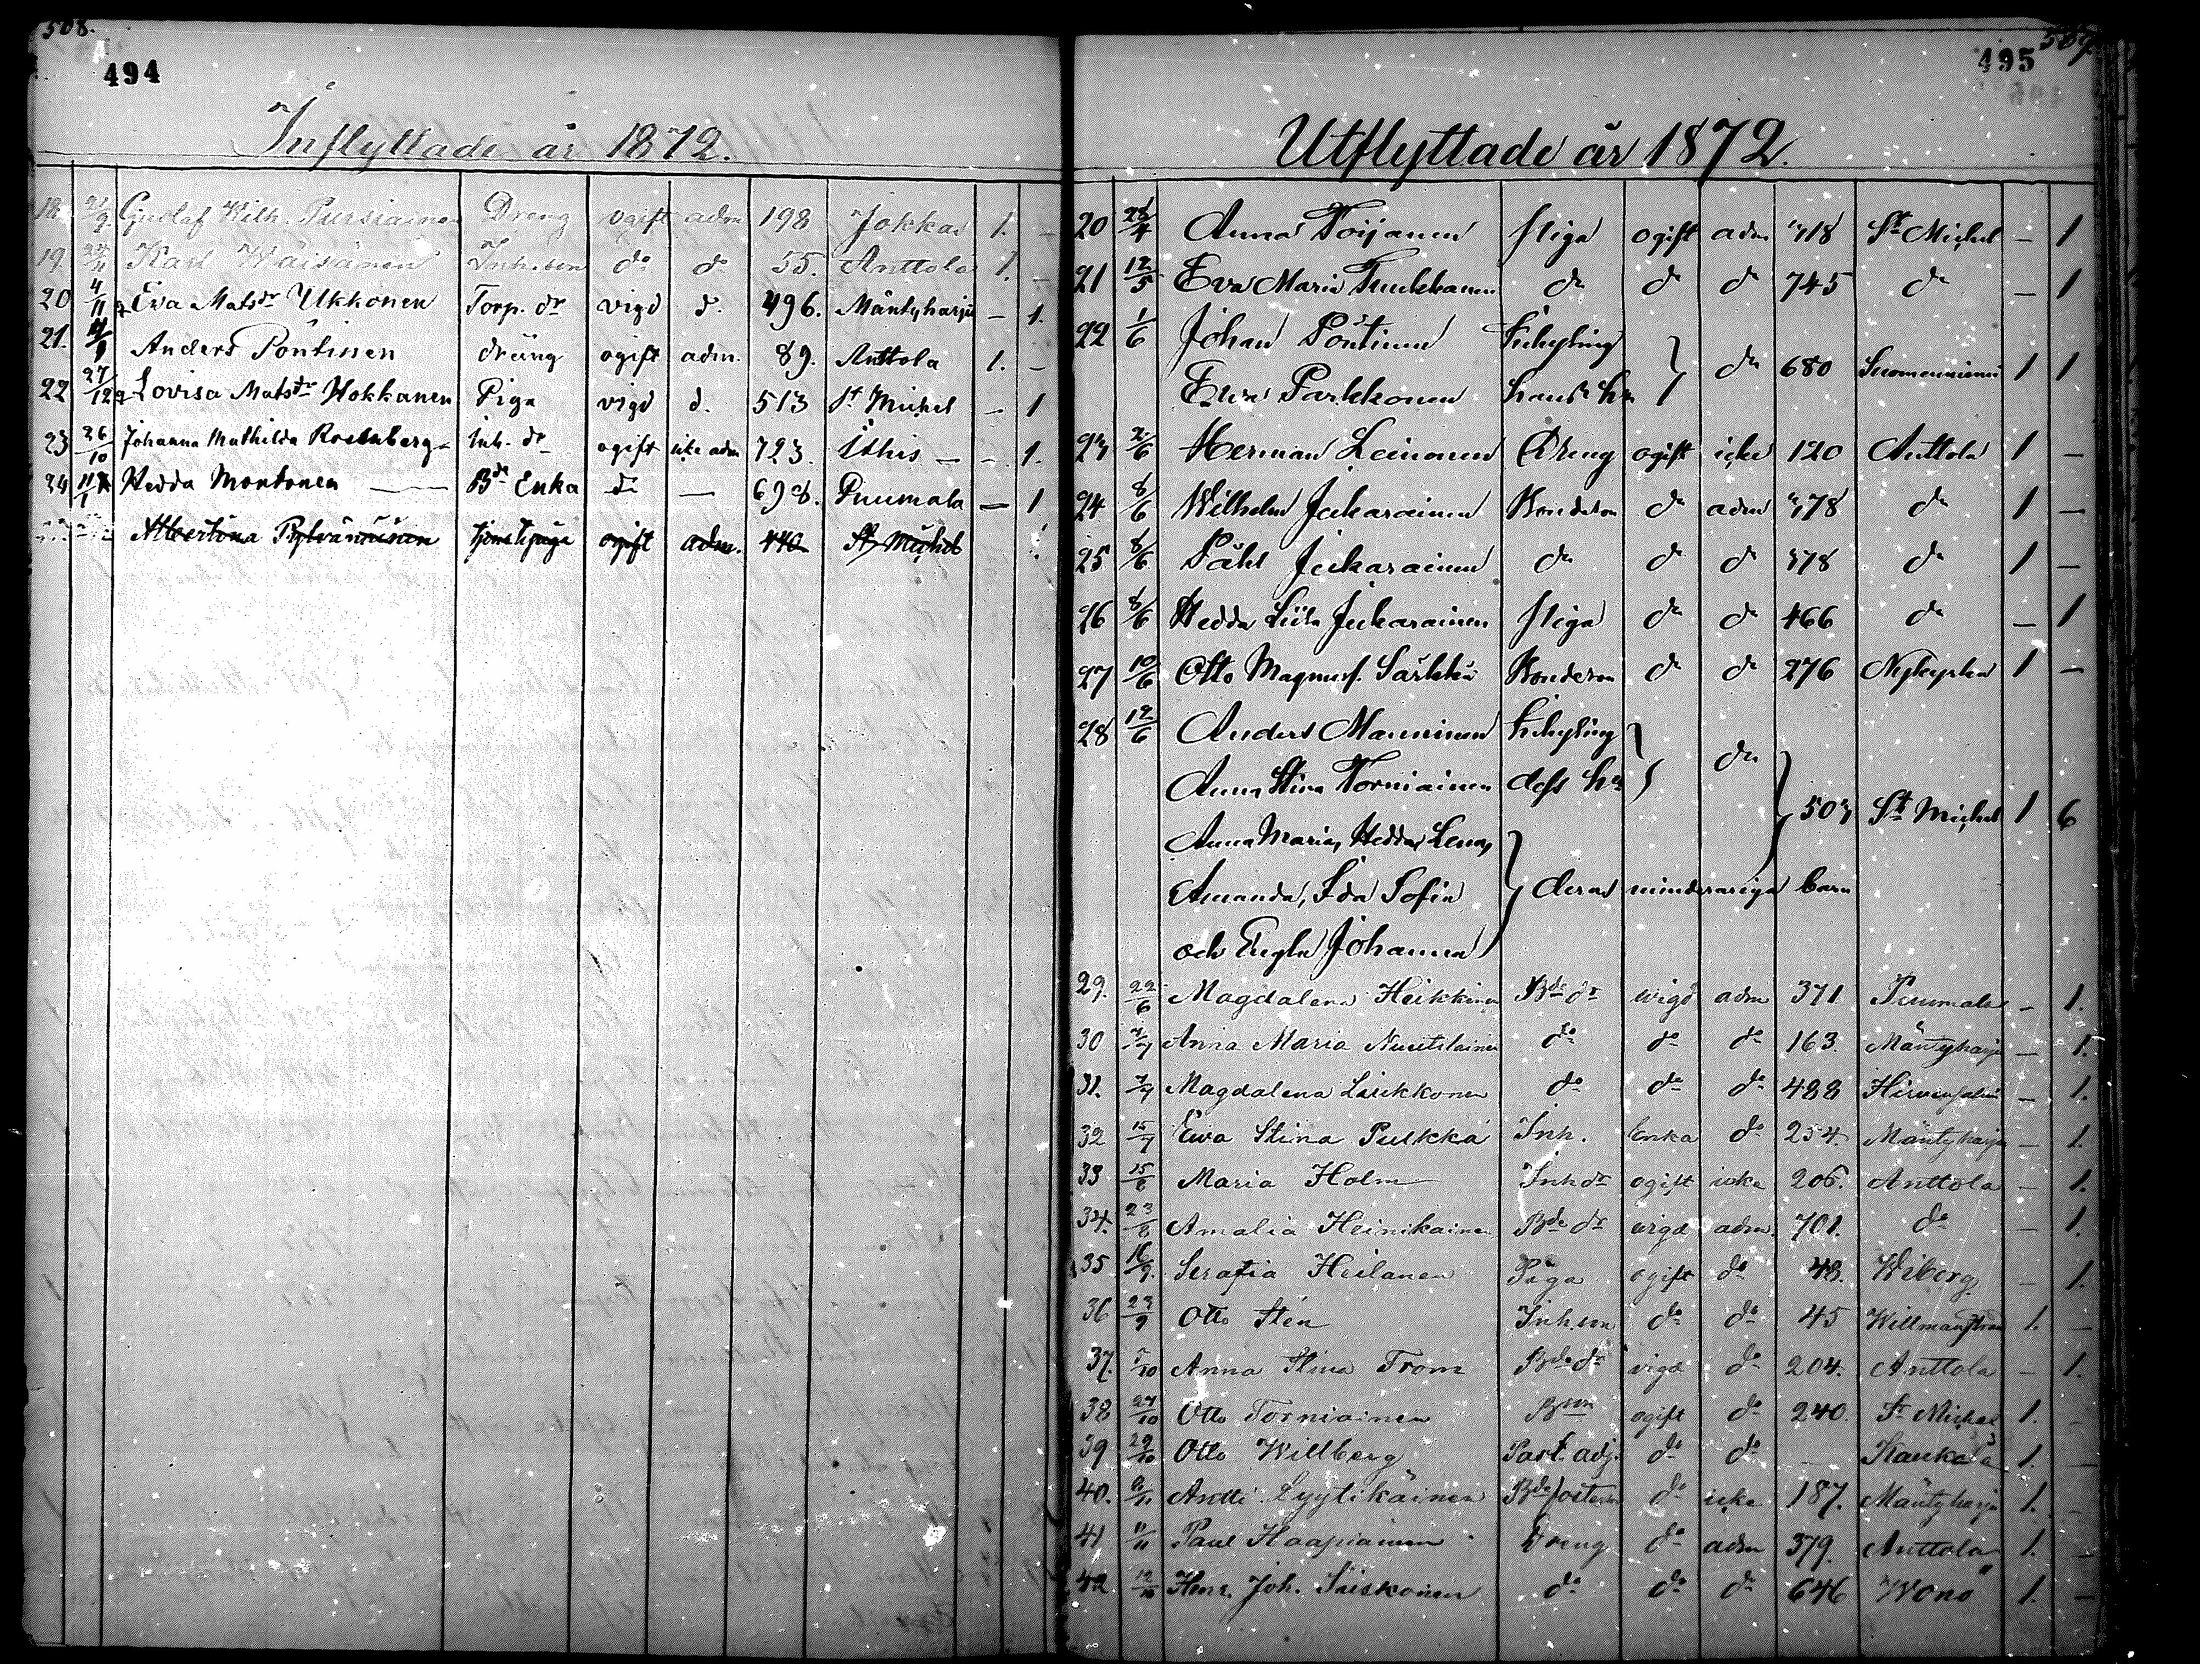 508.
494
Inflyttade år 1872.
18. 21/9. Gustaf Wilh. Pursiainen Dreng ogift adm 198 Jokkas 1. –
19. Karl Wäisänen Inh. son do do 55. Anttola 1. –
20 4/11 Eva Matsdr Ukkonen Torp. dr vigd d. 496. Mäntyharju – 1.
21. Anders Pöntinen dräng ogift adm. 89. Anttola 1. –
22 27/12 Lovisa Matsdr Hokkanen Piga vigd d. 513 St Michel – 1
23 26/10 Johanna Mathilda Rosenberg Inh. dr ogift icke adm 723. Ithis – – 1.
24 Hedda Montonen Bde Enka d. — 698. Puumala — 1
Albertina Pylvänäinen tjenstepiga ogift adm. 440 St Michel
495 509
Utflyttade år 1872.
20 Anna Toijanen piga ogift adm 718 St Michel – 1
21 12/5 Eva Maria Tuukkanen do do do 745 do – 1
22 1/6 Johan Pöntinen Inhysing
Eva Parkkonen hans h. do 680 Suomenniemi 1 1
23 2/6 Herman Leinonen Dreng ogift icke 120 Anttola 1 –
24 8/6 Wilhelm Jukarainen Bondeson do adm 478 do 1 –
25 8/6 Påhl Jukarainen do do do 478 do 1 –
26 8/6 Hedda Liisa Jukarainen piga do do 466 do – 1
27 10/6 Otto Magnus Särkkä Bondeson do do 276 Nykyrka 1 –
28 12/6 Anders Manninen Inhysing
Anna Stina Torniainen dess h. do
503 St Michel 1 6
Anna Maria, Hedda Lena,
Amanda, Ida Sofia deras minderariga barn
och Engla Johanna
29. 22/6 Magdalena Heikkinen Bde dr wigd adm 371 Puumala – 1.
30 Anna Maria Nuutilainen do do do 163. Mäntyharju – 1.
31. 7/7 Magdalena Liukkonen do do do 488 Hirvensalmi – 1.
32 15/7 Ewa Stina Pulkka Inh. Enka do 254. Mäntyharju – 1.
33 15/8 Maria Holm Inh dr ogift icke 206. Anttola – 1.
34. 23/8 Amalia Heinikainen Bde dr wigd adm. 701. do – 1.
35 16/9. Serafia Heilanen Piga ogift do 48. Wiborg – 1.
36 23/9 Otto Stén Inh. son do do 45 Willmanstrand 1. –
37. 5/10 Anna Stina From Bde dr vigd do 204. Anttola – 1.
38 27/10 Otto Torniainen Bson ogift do 240. St Michel 1. –
39 29/10 Otto Willberg Past. adj. do do – Kaukola 1. –
40. Antti Lyytikäinen Bde fosterson do icke 187. Mäntyharju 1. –
41 11/11 Paul Haapiainen Dreng do adm 379. Anttola 1. –
42 Henr. Joh. Siiskonen do do do 646 Wonö 1. –